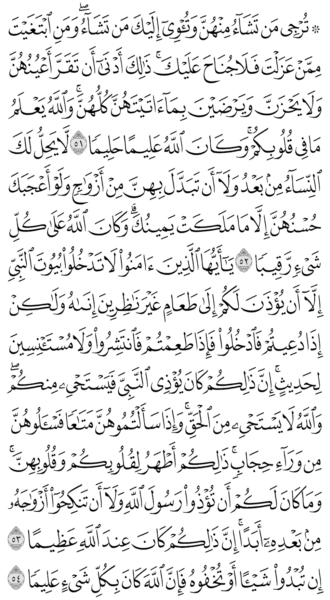 ۞ تُرْجِي مَن تَشَآءُ مِنْهُنَّ وَتُـْٔوِيٓ إِلَيْكَ مَن تَشَآءُۖ وَمَنِ ٱبْتَغَيْتَ
مِمَّنْ عَزَلْتَ فَلَا جُنَاحَ عَلَيْكَۚ ذَٰلِكَ أَدْنَىٰٓ أَن تَقَرَّ أَعْيُنُهُنَّ
وَلَا يَحْزَنَّ وَيَرْضَيْنَ بِمَآ ءَاتَيْتَهُنَّ كُلُّهُنَّۚ وَٱللَّهُ يَعْلَمُ
مَا فِي قُلُوبِكُمْۚ وَكَانَ ٱللَّهُ عَلِيمًا حَلِيمًا ٥١ لَّا يَحِلُّ لَكَ
ٱلنِّسَآءُ مِنۢ بَعْدُ وَلَآ أَن تَبَدَّلَ بِهِنَّ مِنْ أَزْوَٰجٍ وَلَوْ أَعْجَبَكَ
حُسْنُهُنَّ إِلَّا مَا مَلَكَتْ يَمِينُكَۗ وَكَانَ ٱللَّهُ عَلَىٰ كُلِّ
شَيْءٍ رَّقِيبًا ٥٢ يَٰٓأَيُّهَا ٱلَّذِينَ ءَامَنُوا۟ لَا تَدْخُلُوا۟ بُيُوتَ ٱلنَّبِيِّ
إِلَّآ أَن يُؤْذَنَ لَكُمْ إِلَىٰ طَعَامٍ غَيْرَ نَٰظِرِينَ إِنَىٰهُ وَلَٰكِنْ
إِذَا دُعِيتُمْ فَٱدْخُلُوا۟ فَإِذَا طَعِمْتُمْ فَٱنتَشِرُوا۟ وَلَا مُسْتَـْٔنِسِينَ
لِحَدِيثٍۚ إِنَّ ذَٰلِكُمْ كَانَ يُؤْذِي ٱلنَّبِيَّ فَيَسْتَحْيِۦ مِنكُمْۖ
وَٱللَّهُ لَا يَسْتَحْيِۦ مِنَ ٱلْحَقِّۚ وَإِذَا سَأَلْتُمُوهُنَّ مَتَٰعًا فَسْـَٔلُوهُنَّ
مِن وَرَآءِ حِجَابٍۚ ذَٰلِكُمْ أَطْهَرُ لِقُلُوبِكُمْ وَقُلُوبِهِنَّۚ
وَمَا كَانَ لَكُمْ أَن تُؤْذُوا۟ رَسُولَ ٱللَّهِ وَلَآ أَن تَنكِحُوٓا۟ أَزْوَٰجَهُۥ
مِنۢ بَعْدِهِۦٓ أَبَدًاۚ إِنَّ ذَٰلِكُمْ كَانَ عِندَ ٱللَّهِ عَظِيمًا ٥٣
إِن تُبْدُوا۟ شَيْـًٔا أَوْ تُخْفُوهُ فَإِنَّ ٱللَّهَ كَانَ بِكُلِّ شَيْءٍ عَلِيمًا ٥٤